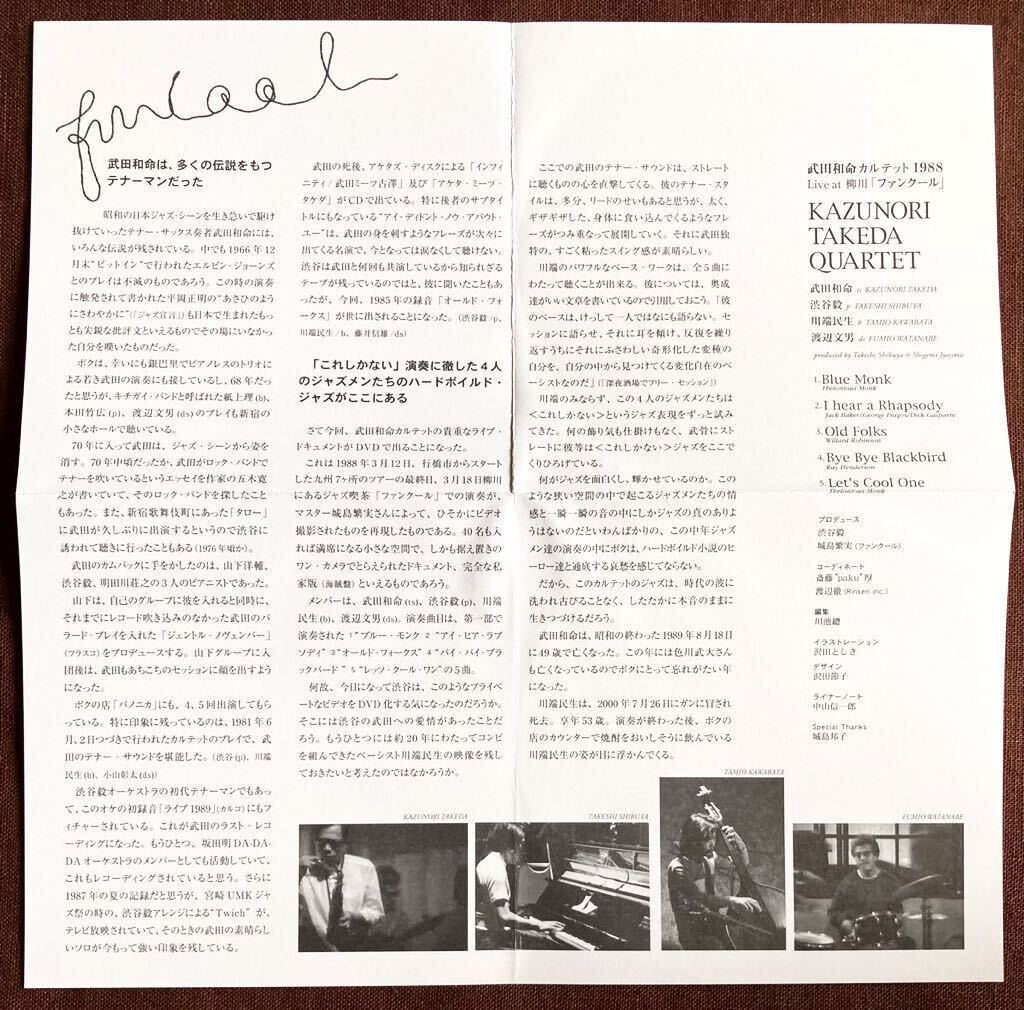 funcool
武田和命は、多くの伝説をもつ
テナーマンだった
昭和の日本ジャズ・シーンを生き急いで駆け
抜けていったテナー・サックス奏者武田和命には、
いろんな伝説が残されている。中でも1966年12
月末“ピットイン”で行われたエルビン・ジョーンズ
とのプレイは不滅のものであろう。この時の演奏
に触発されて書かれた平岡正明の“あさひのよう
にさわやかに”(「ジャズ宣言」)も日本で生まれたもっ
とも実鋭な批評文といえるものでその場にいなかっ
た自分を嘆いたものだった。
ボクは、幸いにも銀巴里でピアノレスのトリオに
よる若き武田の演奏にも接しているし、68年だっ
たと思うが、キチガイ・バンドと呼ばれた紙上理(b)、
本田竹広(p)、渡辺文男(ds)のプレイも新宿の
小さなホールで聴いている。
70年に入って武田は、ジャズ・シーンから姿を
消す。70年中頃だったか、武田がロック・バンドで
テナーを吹いているというエッセイを作家の五木寛
之が書いていて、そのロック・バンドを探したこと
もあった。また、新宿歌舞伎町にあった「タロー」
に武田が久しぶりに出演するというので渋谷に
誘われて聴きに行ったこともある(1976年頃か)。
武田のカムバックに手をかしたのは、山下洋輔、
渋谷毅、明田川荘之の3人のピアニストであった。
山下は、自己のグループに彼を入れると同時に、
それまでにレコード吹き込みのなかった武田のバ
ラード・プレイを入れた「ジェントル・ノヴェンバー」
(フラスコ)をプロデュースする。山下グループに入
団後は、武田もあちこちのセッションに顔を出すよう
になった。
ボクの店「パノニカ」にも、4、5回出演してもら
っている。特に印象に残っているのは、1981年6
月、2日つづきで行われたカルテットのプレイで、武
田のテナー・サウンドを堪能した。(渋谷(p)、川端
民生(b)、小山彰太(ds))
渋谷毅オーケストラの初代テナーマンでもあっ
て、このオケの初録音「ライブ1989」(カルコ)にもフ
ィチャーされている。これが武田のラスト・レコ
ーディングになった。もうひとつ、坂田明DA-DA-
DAオーケストラのメンバーとしても活動していて、
これもレコーディングされていると思う。さらに
1987年の夏の記録だと思うが、宮崎UMKジャ
ズ祭の時の、渋谷毅アレンジによる“Twich”が、
テレビ放映されていて、そのときの武田の素晴らし
いソロが今もって強い印象を残している。
武田の死後、アケタズ・ディスクによる「インフィ
ニティ/武田ミーツ古澤」及び「アケタ・ミーツ・
タケダ」がCDで出ている。特に後者のサブタイ
トルにもなっている“アイ・ディドント・ノウ・アバウト・
ユー”は、武田の身を刺すようなフレーズが次々に
出てくる名演で、今となっては涙なくして聴けない。
渋谷は武田と何回も共演しているから知られざる
テープが残っているのではと、彼に聞いたこともあ
ったが、今回、1985年の録音「オールド・フォ
ークス」が世に出されることになった。(渋谷毅/p、
川端民生/b、藤井信雄/ds)
「これしかない」演奏に徹した4人
のジャズメンたちのハードボイルド・
ジャズがここにある
さて今回、武田和命カルテットの貴重なライブ・
ドキュメントがDVDで出ることになった。
これは1988年3月12日、行橋市からスタート
した九州7ヶ所のツアーの最終日、3月18日柳川
にあるジャズ喫茶「ファンクール」での演奏が、
マスター城島繁実さんによって、ひそかにビデオ
撮影されたものを再現したものである。40名も入
れば満席になる小さな空間で、しかも据え置きの
ワン・カメラでとらえられたドキュメント、完全な私
家版(海賊盤)といえるものであろう。
メンバーは、武田和命(ts)、渋谷毅(p)、川端
民生(b)、渡辺文男(ds)。演奏曲目は、第一部で
演奏された 1“ブルー・モンク 2“アイ・ヒア・ラプ
ソディ”3“オールド・フォークス”4“バイ・バイ・ブラ
ックバード”5“レッツ・クール・ワン”の5曲。
何故、今日になって渋谷は、このようなプライベ
ートなビデオをDVD化する気になったのだろうか。
そこには渋谷の武田への愛情があったことだ
ろう。もうひとつには約20年にわたってコンビ
を組んできたベーシスト川端民生の映像を残し
ておきたいと考えたのではなかろうか。
ここでの武田のテナー・サウンドは、ストレート
に聴くものの心を直撃してくる。彼のテナー・スタ
イルは、多分、リードのせいもあると思うが、太く、
ギザギザした、身体に食い込んでくるようなフレー
ズがつみ重なって展開していく。それに武田独
特の、すごく粘ったスイング感が素晴らしい。
川端のパワフルなベース・ワークは、全5曲に
わたって聴くことが出来る。彼については、奥成
達がいい文章を書いているので引用しておこう。「彼
のベースは、けっして一人ではなにも語らない。セ
ッションに語らせ、それに耳を傾け、反復を繰り
返すうちにそれにふさわしい奇形化した変種の
自分を、自分の中から見つけてくる変化自在のベ
ーシストなのだ」(「深夜酒場でフリー・セッション」)
川端のみならず、この4人のジャズメンたちは
<これしかない>というジャズ表現をずっと試み
てきた。何の飾り気も仕掛けもなく、武骨にスト
レートに彼等は<これしかない>ジャズをここで
くりひろげている。
何がジャズを面白くし、輝かせているのか。この
ような狭い空間の中で起こるジャズメンたちの情
感と一瞬一瞬の音の中にしかジャズの真のありよ
うはないのだといわんばかりの、この中年ジャズ
メン達の演奏の中にボクは、ハードボイルド小説のヒ
ーロー達と通底する哀愁を感じてならない。
だから、このカルテットのジャズは、時代の波に
洗われ古びることなく、したたかに本音のままに
生きつづけるだろう。
武田和命は、昭和の終わった1989年8月18日
に49歳で亡くなった。この年には色川武大さん
も亡くなっているのでボクにとって忘れがたい年
になった。
川端民生は、2000年7月26日にガンに冒され
死去。享年53歳。演奏が終わった後、ボクの
店のカウンターで焼酎をおいしそうに飲んでいる
川端民生の姿が目に浮かんでくる。
武田和命カルテット1988
Live at 柳川「ファンクール」
KAZUNORI
TAKEDA
QUARTET
武田和命 ts KAZUNORI TAKEDA
渋谷毅 p TAKESHI SHIBUYA
川端民生 b TAMIO KAWABATA
渡辺文男 ds FUMIO WATANABE
produced by Takeshi Shibuya & Shigemi Jyojima
1.Blue Monk
Thelonious Monk
2.I hear a Rhapsody
Jack Baker/George Fragos/Dick Gasparre
3.Old Folks
Willard Robinson
4.Bye Bye Blackbird
Ray Henderson
5.Let's Cool One
Thelonious Monk
プロデュース
渋谷毅
城島繁実(ファンクール)
コーディネート
斎藤“paku”厚
渡辺徹(Rinsen inc.)
編集
川池總
イラストレーション
沢田としき
デザイン
沢田節子
ライナーノート
中山信一郎
Special Thanks
城島邦子
KAZUNORI TAKEDA
TAKESHI SHIBUYA
TAMIO KAWABATA
FUMIO WATANABE